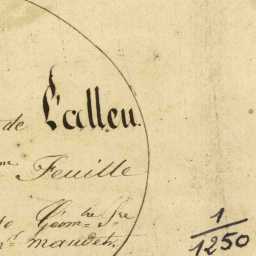 de L'alleu.
me Feuille
le Géomtre
mandet.
1
1250